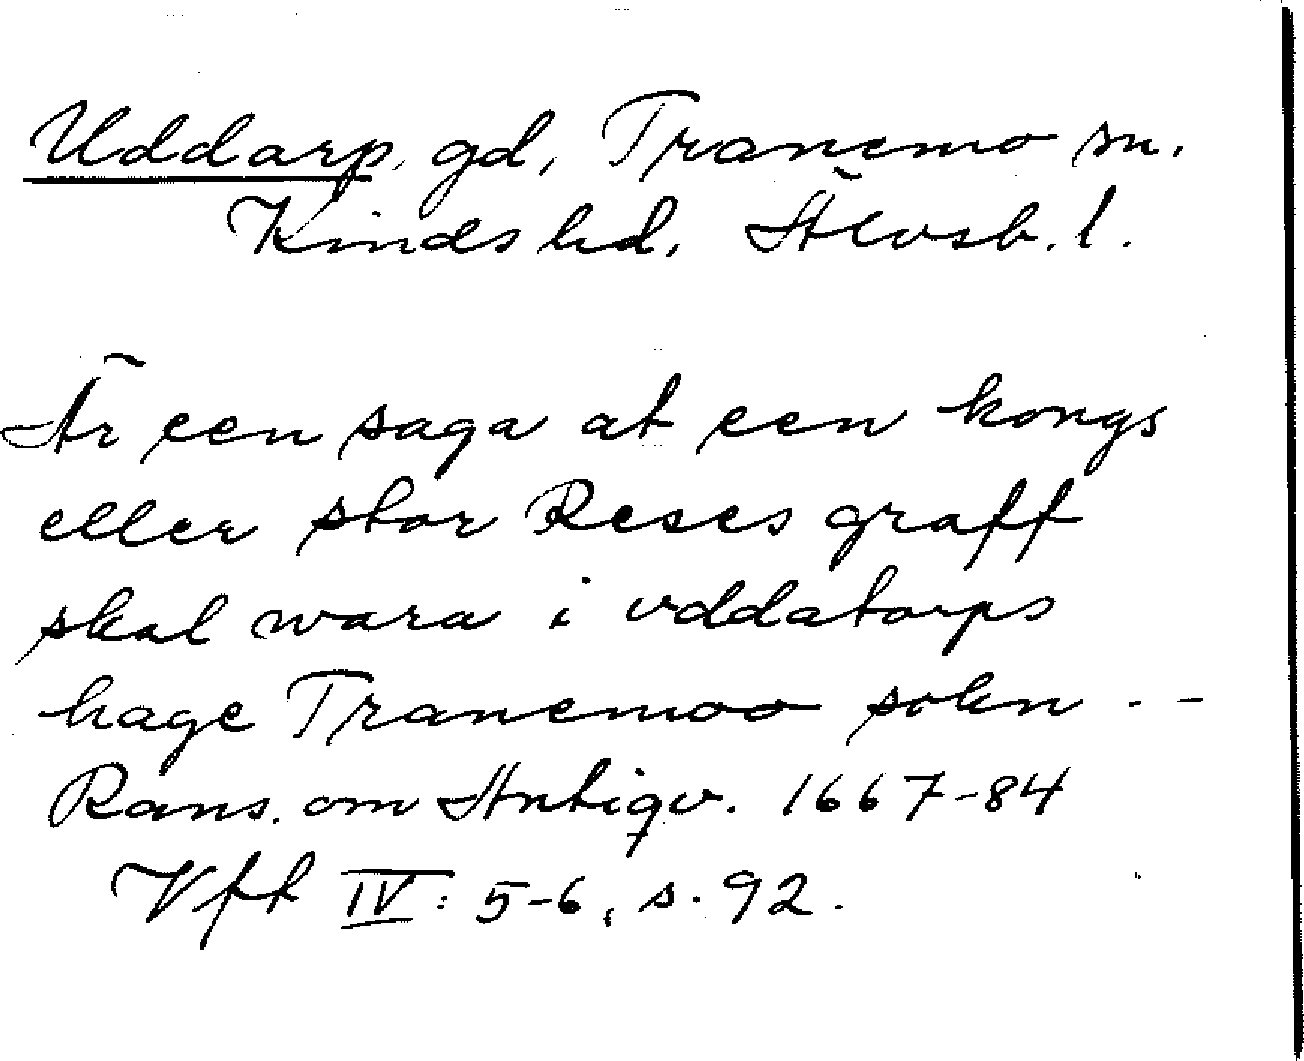 Uddarp, gd, Tranemo sn.
Kinds hd, Älvsb. l.
Är een saga at een kongs
eller stor Reses graff
skal wara i vddatorps
hage Tranemoo sokn --
Rans. om Antiqv. 1667-84
Vft IV: 5-6, s. 92.